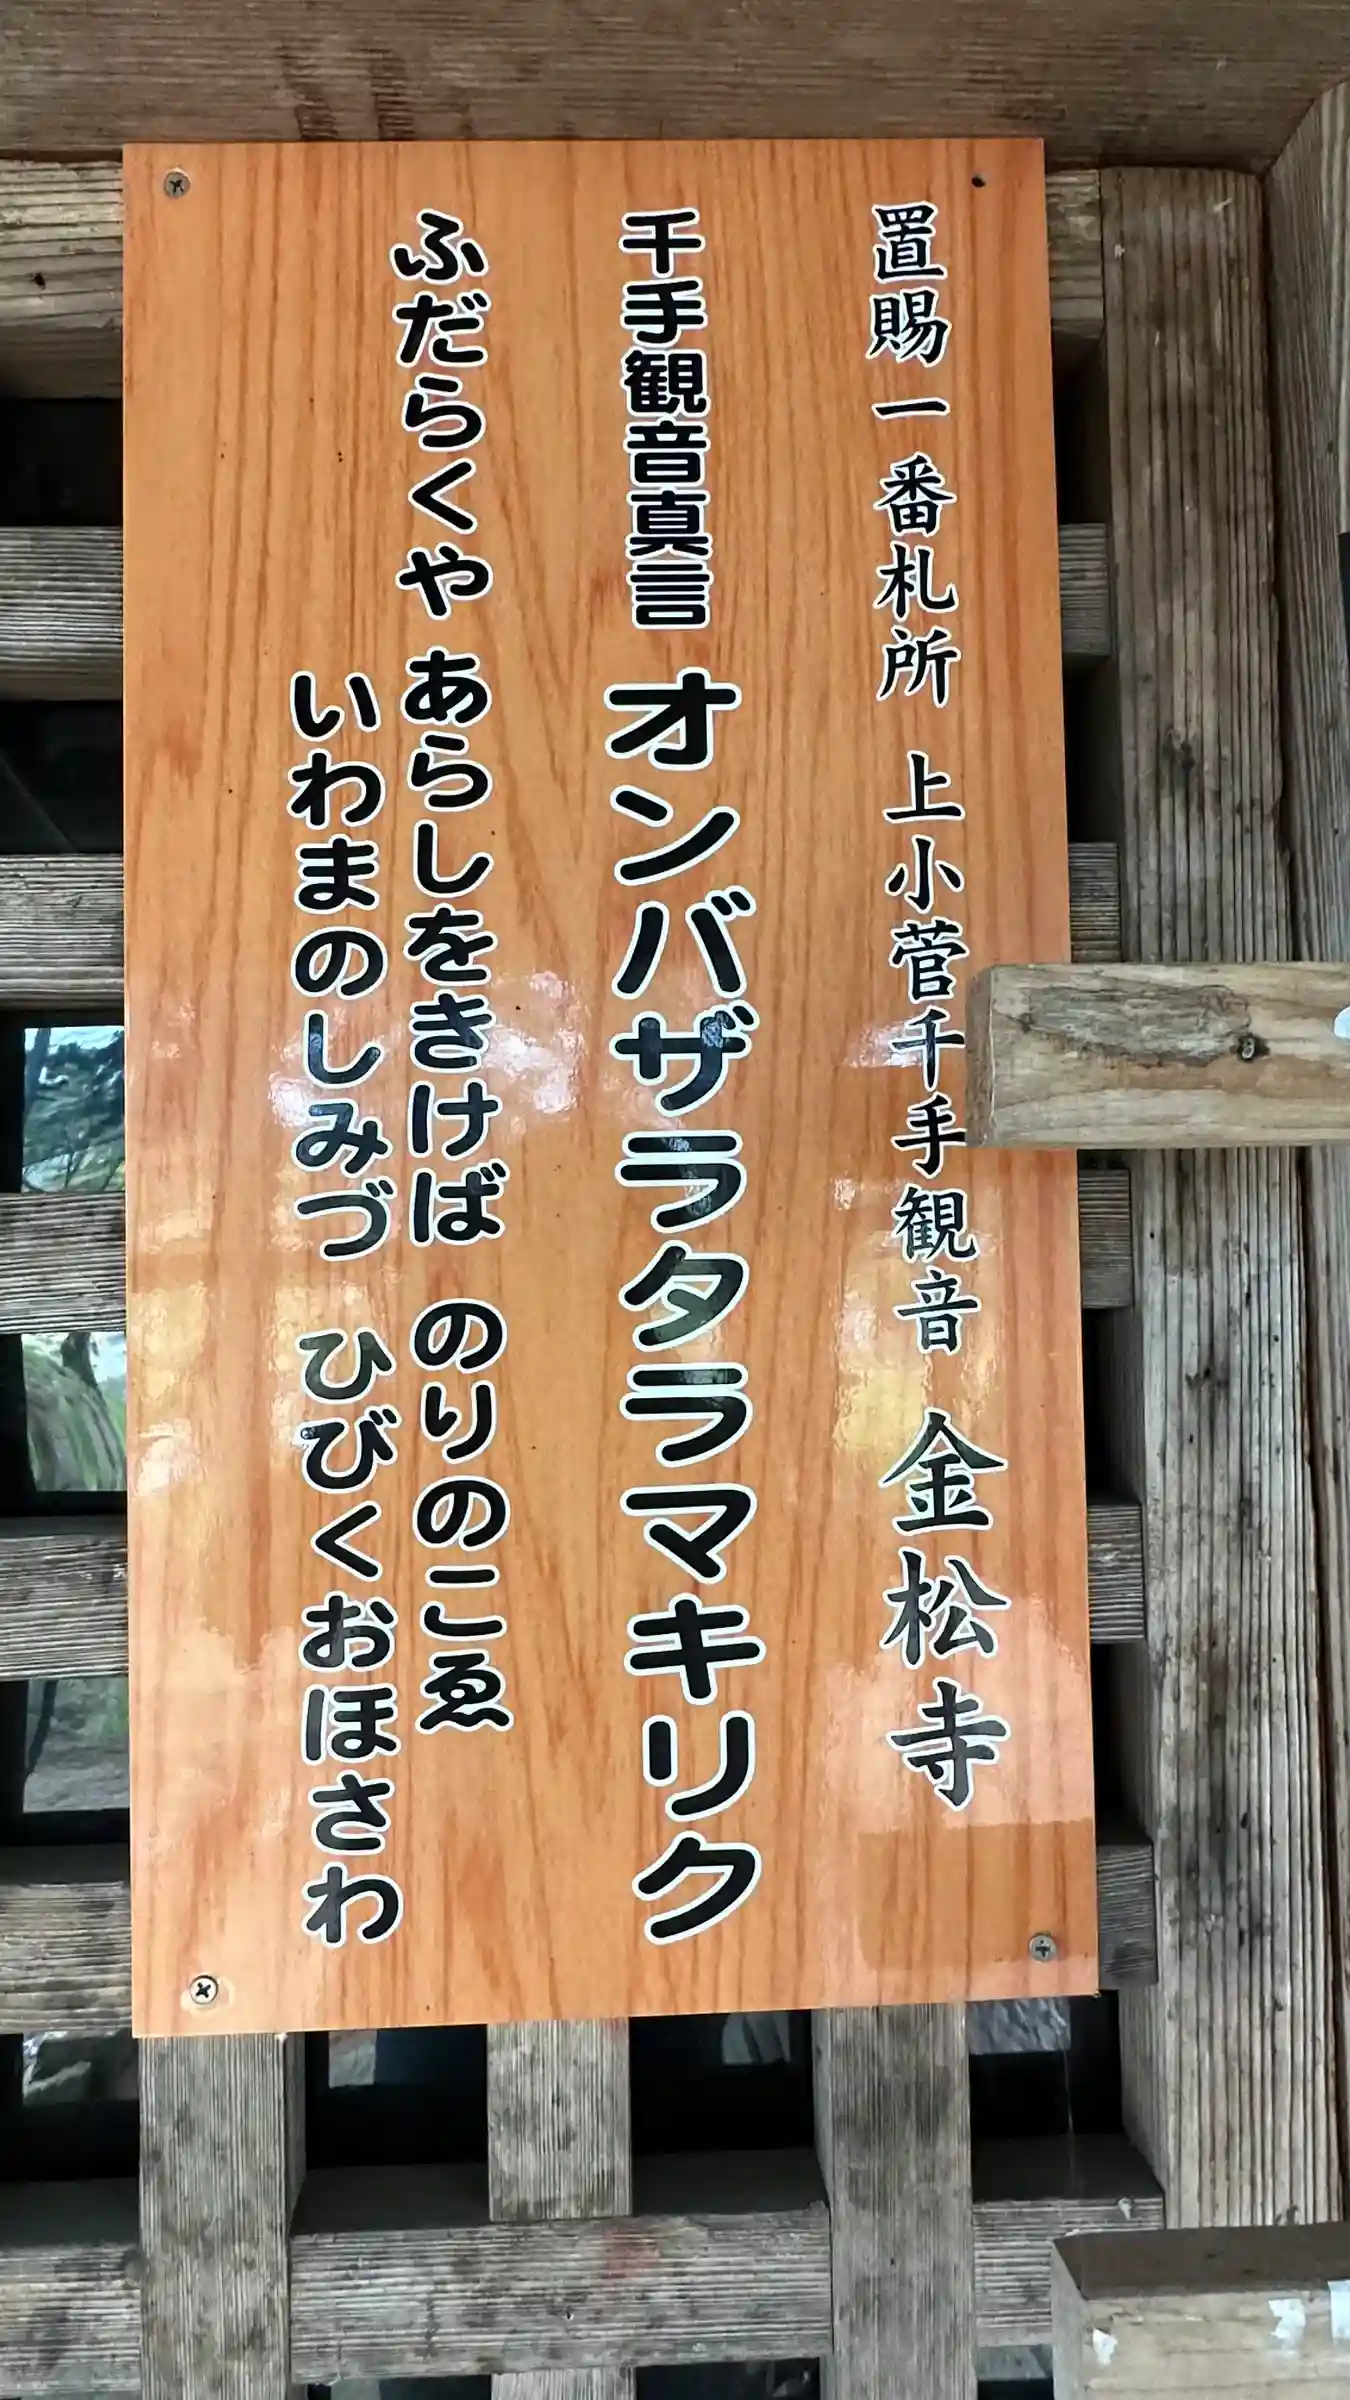 置賜一番札所 上小菅千手観音 金松寺
千手観音真言 オンバザラタラマキリク
ふだらくや あらしをきけば のりのこゑ
いわまのしみづ ひびくおほさわ